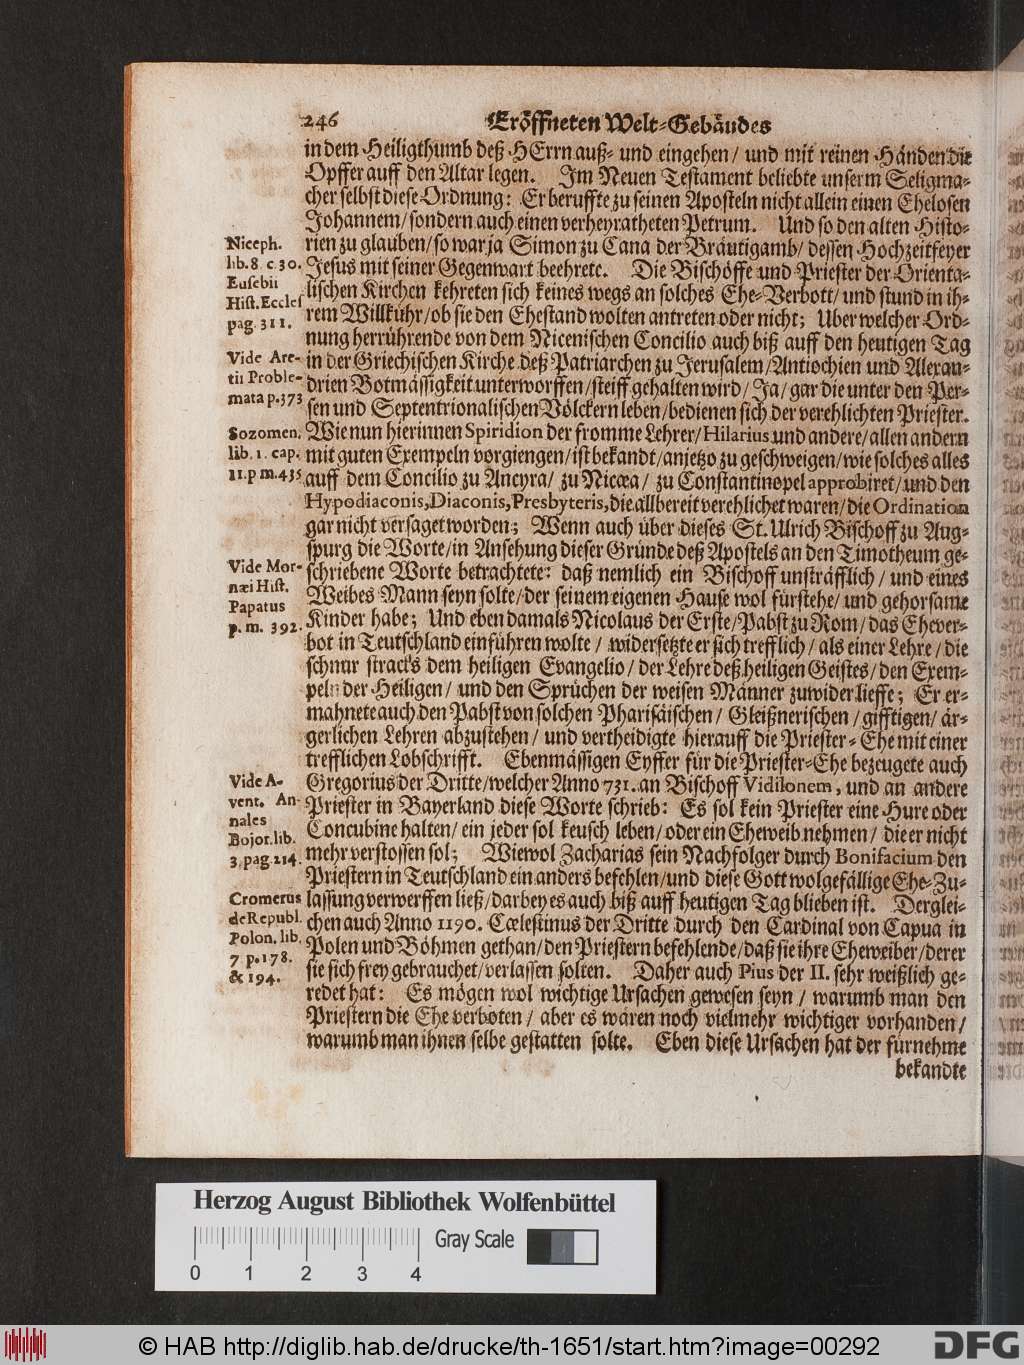 246 Eröffneten Welt-Gebäudes
in dem Heiligthumb deß HErrn auß- und eingehen / und mit reinen Händen die
Opffer auff den Altar legen. Im Neuen Testament beliebte unserm Seligma-
cher selbst diese Ordnung: Er beruffte zu seinen Aposteln nicht allein einen Ehelosen
Johannem / sondern auch einen verheyratheten Petrum. Und so den alten Histo-
rien zu glauben / so war ja Simon zu Cana der Bräutigamb / dessen Hochzeitfeyer
Jesus mit seiner Gegenwart beehrete. Die Bischöffe und Priester der Orienta-
lischen Kirchen kehreten sich keines wegs an solches Ehe-Verbott / und stund in ih-
rem Willkühr / ob sie den Ehestand wolten antreten oder nicht; Uber welcher Ord-
nung herrührende von dem Nicenischen Concilio auch biß auff den heutigen Tag
in der Griechischen Kirche deß Patriarchen zu Jerusalem / Antiochien und Alexan-
drien Botmässigkeit unterworffen / steiff gehalten wird / Ja / gar die unter den Per-
sen und Septentrionalischen Völckern leben / bedienen sich der verehlichten Priester.
Wie nun hierinnen Spiridion der fromme Lehrer / Hilarius und andere / allen andern
mit guten Exempeln vorgiengen / ist bekandt / anjetzo zu geschweigen / wie solches alles
auff dem Concilio zu Ancyra / zu Nicæa / zu Constantinopel approbiret / und den
Hypodiaconis, Diaconis, Presbyteris, die allbereit verehlichet waren / die Ordination
gar nicht versaget worden; Wenn auch über dieses St. Ulrich Bischoff zu Aug-
spurg die Worte / in Ansehung dieser Gründe deß Apostels an den Timotheum ge-
schriebene Worte betrachtete: daß nemlich ein Bischoff unsträfflich / und eines
Weibes Mann seyn solte / der seinem eigenen Hause wol fürstehe / und gehorsame
Kinder habe; Und eben damals Nicolaus der Erste / Pabst zu Rom / das Ehever-
bot in Teutschland einführen wolte / widersetzte er sich trefflich / als einer Lehre / die
schnur stracks dem heiligen Evangelio / der Lehre deß heiligen Geistes / den Exem-
peln der Heiligen / und den Sprüchen der weisen Männer zuwider lieffe; Er er-
mahnete auch den Pabst von solchen Pharisäischen / Gleißnerischen / gifftigen / är-
gerlichen Lehren abzustehen / und vertheidigte hierauff die Priester-Ehe mit einer
trefflichen Lobschrifft. Ebenmässigen Eyffer für die Priester-Ehe bezeugete auch
Gregorius der Dritte / welcher Anno 731. an Bischoff Vidilonem, und an andere
Priester in Bayerland diese Worte schrieb: Es sol kein Priester eine Hure oder
Concubine halten / ein jeder sol keusch leben / oder ein Eheweib nehmen / die er nicht
mehr verstossen sol; Wiewol Zacharias sein Nachfolger durch Bonifacium den
Priestern in Teutschland ein anders befehlen / und diese Gott wolgefällige Ehe-Zu-
lassung verwerffen ließ / darbey es auch biß auff heutigen Tag blieben ist. Derglei-
chen auch Anno 1190. Cœlestinus der Dritte durch den Cardinal von Capua in
Polen und Böhmen gethan / den Priestern befehlende / daß sie ihre Eheweiber / derer
sie sich frey gebrauchet / verlassen solten. Daher auch Pius der II. sehr weißlich ge-
redet hat: Es mögen wol wichtige Ursachen gewesen seyn / warumb man den
Priestern die Ehe verboten / aber es wären noch vielmehr wichtiger vorhanden /
warumb man ihnen selbe gestatten solte. Eben diese Ursachen hat der fürnehme
bekandte
Niceph.
lib. 8 c. 30.
Eusebii
Hist. Eccles
pag. 311.
Vide Are-
tii Proble-
mata p. 373
Sozomen.
lib. 1. cap.
11. p m. 435
Vide Mor-
næi Hist.
Papatus
p. m. 392.
Vide A-
vent. An-
nales
Bojor. lib.
3. pag. 214.
Cromerus
de Republ.
Polon. lib.
7 p. 178.
& 194.
Herzog August Bibliothek Wolfenbüttel
Gray Scale
0 1 2 3 4
© HAB http://diglib.hab.de/drucke/th-1651/start.htm?image=00292
DFG